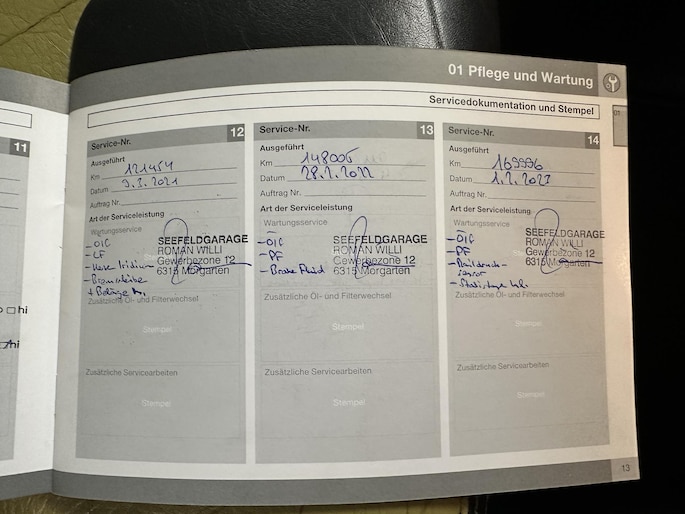 01 Pflege und Wartung
Servicedokumentation und Stempel
01
11
hi
hi
Service-Nr. 12
Ausgeführt
Km 121454
Datum 9.3.2021
Auftrag Nr.
Art der Serviceleistung
Wartungsservice
- LF
SEEFELDGARAGE
ROMAN WILLI
Gewerbezone 12
6315 Morgarten
Zusätzliche Öl- und Filterwechsel
Stempel
Zusätzliche Servicearbeiten
Stempel
Service-Nr. 13
Ausgeführt
Km 148005
Datum 28.2.2022
Auftrag Nr.
Art der Serviceleistung
Wartungsservice
- PF
- Brake Fluid
SEEFELDGARAGE
ROMAN WILLI
Gewerbezone 12
6315 Morgarten
Zusätzliche Öl- und Filterwechsel
Stempel
Zusätzliche Servicearbeiten
Stempel
Service-Nr. 14
Ausgeführt
Km 169996
Datum 1.2.2023
Auftrag Nr.
Art der Serviceleistung
Wartungsservice
- PF
SEEFELDGARAGE
ROMAN WILLI
Gewerbezone 12
6315 Morgarten
Zusätzliche Öl- und Filterwechsel
Stempel
Zusätzliche Servicearbeiten
Stempel
13